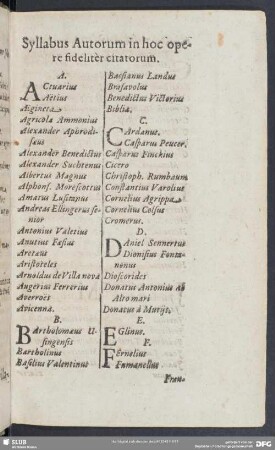 Syllabus Autorum in hoc ope-
re fideliter citatorum.
A.
ACtuarius
Aëtius
Æginera
Agricola Ammonius
Alexander Aphrodi-
saus
Alexander Benedictus
Alexander Suchtenus
Albertus Magnus
Alphons. Morescottus
Amatus Lusitanus
Andreas Ellingerus se-
nior
Antonius Valetius
Anutius Fasius
Aretaus
Aristoteles
Arnoldus de Villa nova
Augerius Ferrerius
Averroës
Avicenna.
B.
BArtholomæus U-
singensis
Bartholinus
Basilius Valentinus
Bassianus Landus
Brasavolus
Benedictus Victorius
Biblia.
C.
CArdanus.
Casparus Peucer.
Casparus Finckius
Cicero
Christoph. Rumbaum
Constantius Varolius
Cornelius Agrippa
Cornelius Celsus
Cromerus.
D.
DAniel Sennertus
Dionisius Fonta-
nonus
Dioscorides
Donatus Antonius ab
Alto mari
Donatus à Mutiis.
E.
EGlinus.
F.
FErnelius
Fumanellus
Fran-